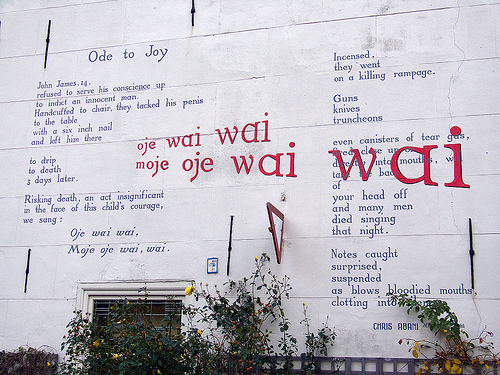 Ode to Joy
John James, 14,
refused to serve his conscience up
to indict an innocent man.
Handcuffed to chair, they tacked his penis
to the table
with a six inch nail
and left him there
to drip
to death
3 days later.
Risking death, an act insignificant
in the face of this child's courage,
we sang:
Oje wai wai,
Moje oje wai, wai.
oje wai wai
moje oje wai wai
Incensed,
they went
on a killing rampage.
Guns
knives
truncheons
even canisters of tear gas,
close up
into mouths,
of
your head off
and many men
died singing
that night.
Notes caught
surprised,
suspended
as blows bloodied mouths
clotting into
CHRIS ABANI